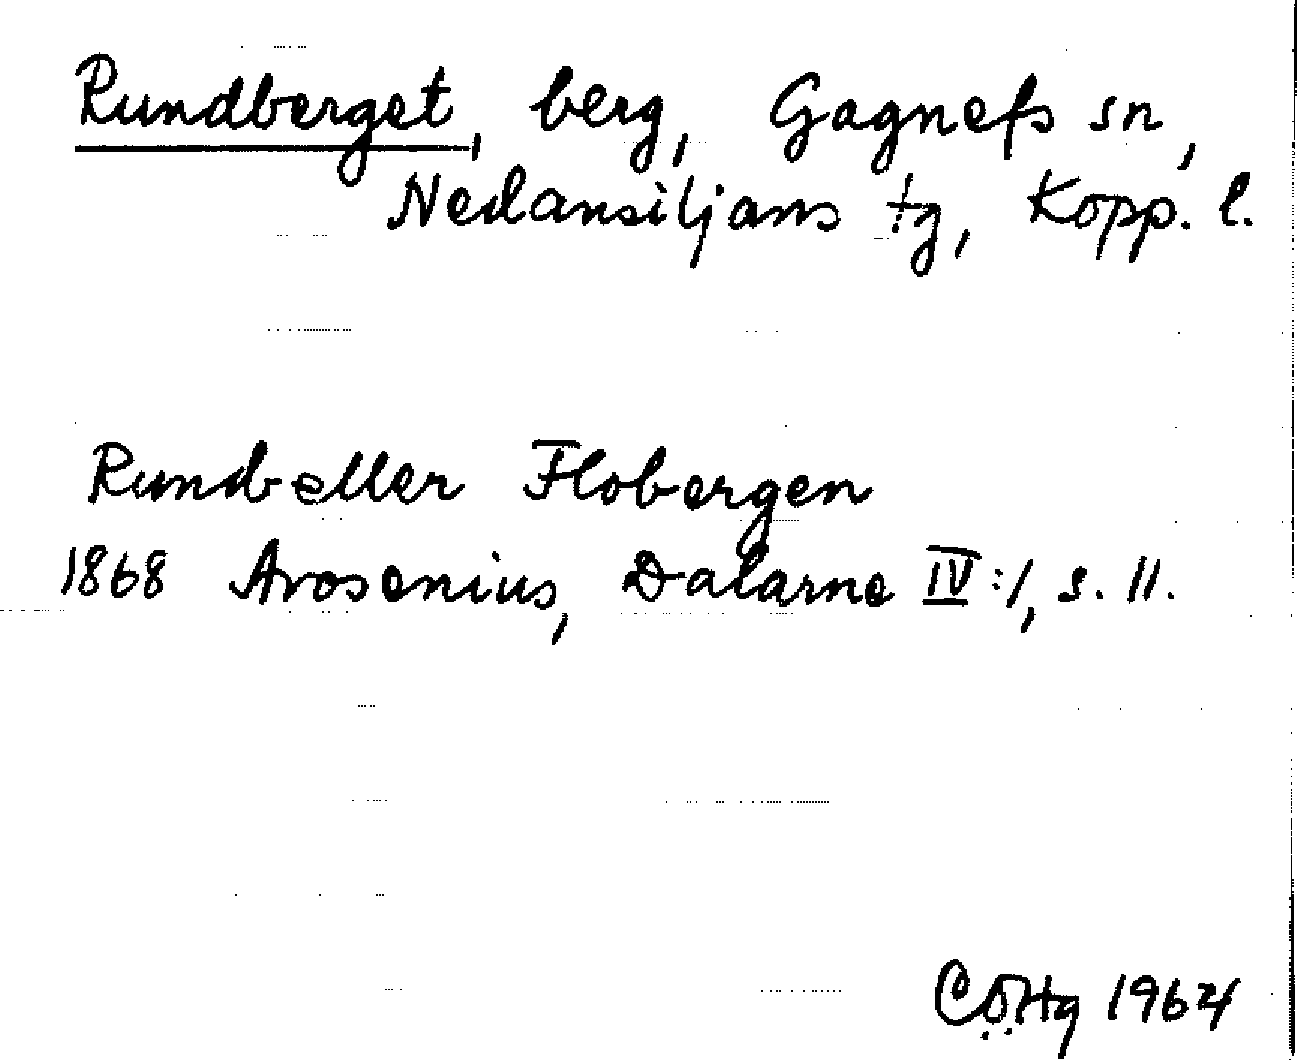 Rundberget, berg, Gagnefs sn,
Nedansiljans tg, Kopp. l.
Rund- eller Flobergen
1868 Arosenius, Dalarne IV:1, s. 11.
1964